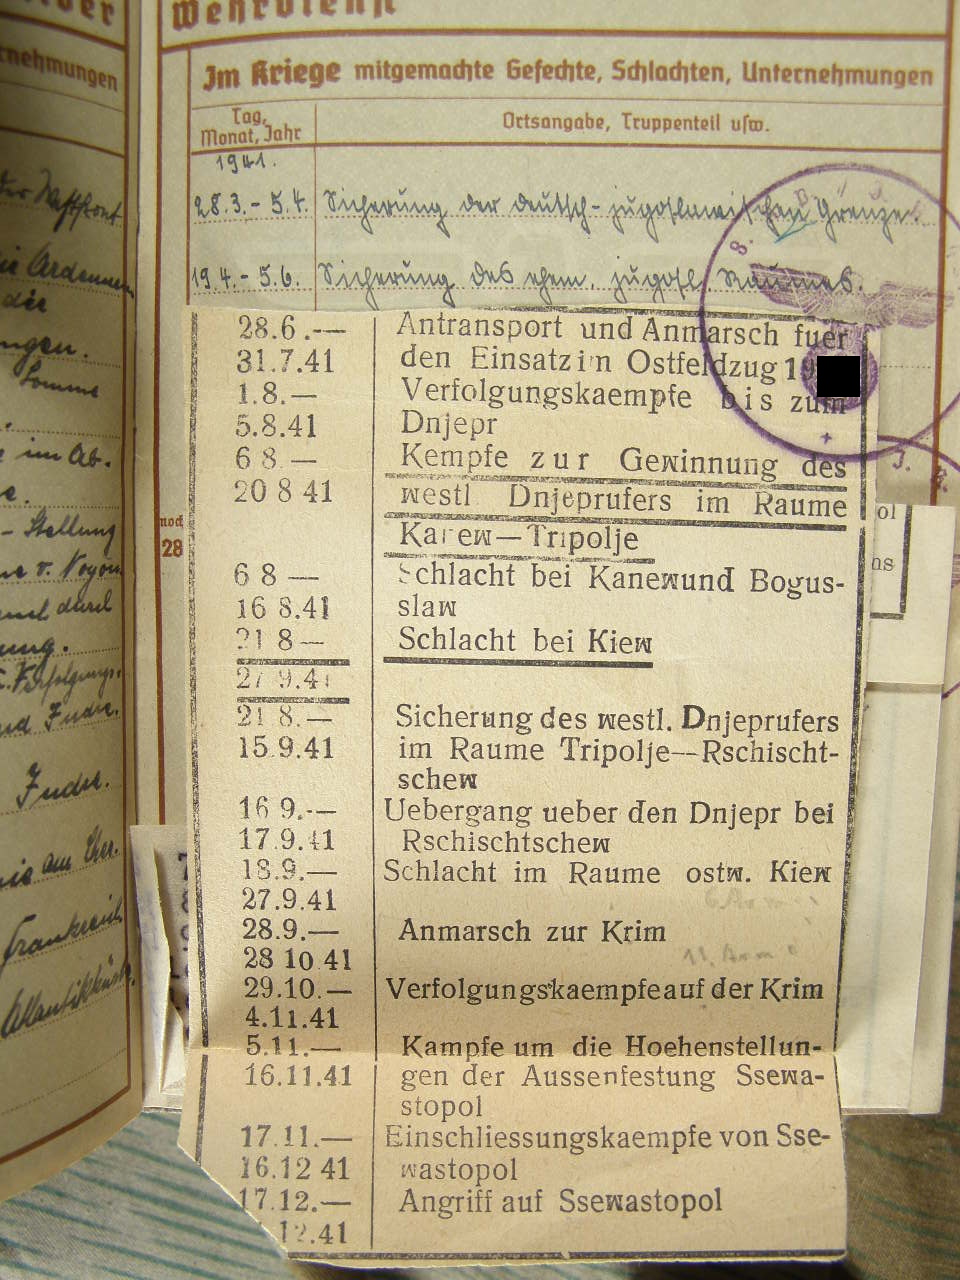 Wehrdienst
nehmungen
Im Kriege mitgemachte Gefechte, Schlachten, Unternehmungen
Tag, Monat, Jahr
Ortsangabe, Truppenteil usw.
1941.
28.3.- 5.4. Sicherung der deutsch-jugoslawischen Grenze.
19.4.- 5.6. Sicherung des ehem. jugosl. Raumes.
28.6.— Antransport und Anmarsch fuer
31.7.41 den Einsatz im Ostfeldzug 19
1.8.— Verfolgungskaempfe bis zum
5.8.41 Dnjepr
6 8 — Kempfe zur Gewinnung des
20 8 41 westl Dnjeprufers im Raume
Karew—Tripolje
6 8 — Schlacht bei Kanew und Bogus-
16 8.41 slaw
21 8 — Schlacht bei Kiew
27 9.41
21 8.— Sicherung des westl. Dnjeprufers
15.9.41 im Raume Tripolje—Rschischt-
schew
16 9.— Uebergang ueber den Dnjepr bei
17.9.41 Rschischtschew
18.9.— Schlacht im Raume ostw. Kiew
27.9.41
28.9.— Anmarsch zur Krim
28 10 41
29.10.— Verfolgungskaempfe auf der Krim
4.11.41
5.11.— Kampfe um die Hoehenstellun-
16.11.41 gen der Aussenfestung Ssewa-
stopol
17.11.— Einschliessungskaempfe von Sse-
16.12 41 wastopol
17.12.— Angriff auf Ssewastopol
12.41
noch
28
der Westfront
Ardennen
die
ngen.
Somme
im Ab.
- Stellung
v. Noyon
durch
ung.
Verfolgungs-
und Indre.
Indre.
am Cher.
Frankreich
Atlantikküste.
ol
ns